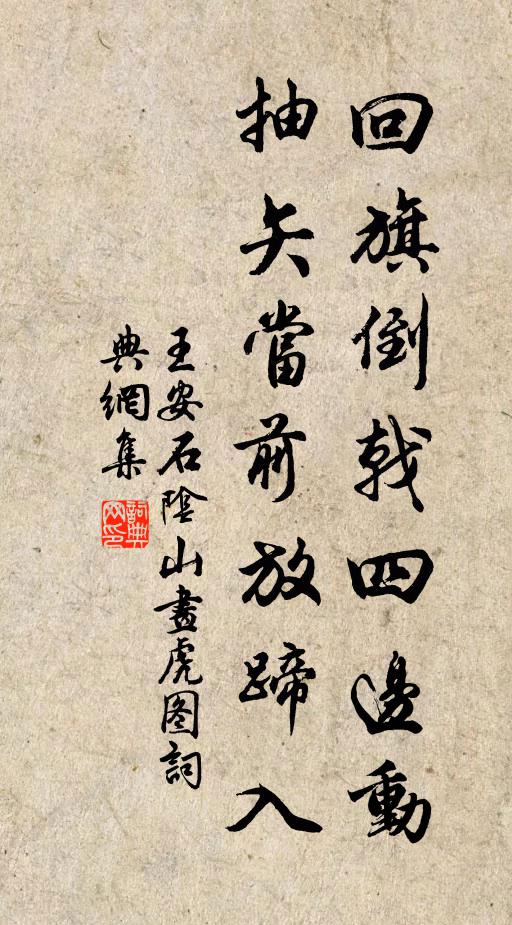 回旗倒戟四邊動
抽矢當前放蹄入
王安石陰山畫虎图詞
典網集
詞典網印